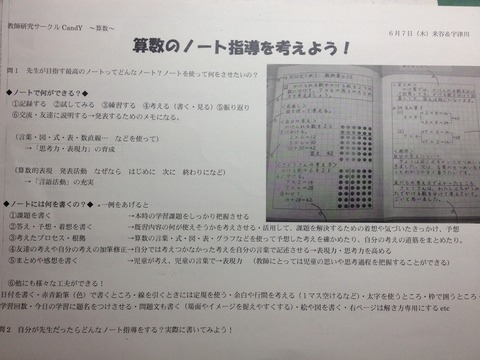 教師研究サークル CandY ～算数～
6月7日（木）米谷＆宇津川
算数のノート指導を考えよう！
問1 先生が目指す最高のノートってどんなノート？ノートを使って何をさせたいの？
◆ノートで何ができる？◆
①記録する ②試してみる ③練習する ④考える（書く・見る）⑤振り返り
⑥交流・友達に説明する→発表するためのメモになる。
（言葉・図・式・表・数直線… などを使って）
→「思考力・表現力」の育成
（算数的表現 発表活動 なぜなら はじめに 次に 終わりになど）
→「言語活動」の充実
◆ノートには何を書くの？◆ ←一例をあげると
①課題を書く →本時の学習課題をしっかり把握させる
②答え・予想・着想を書く →既習内容の何が使えそうかを考えさせる・活用して、課題を解決するための着想や気づいたきっかけ、予想
③考えたプロセス・根拠 →算数の言葉・式・図・表・グラフなどを使って予想した考えを確かめたり、自分の考えの道筋をまとめたり。
④友達の考えや自分の考えの加筆修正→自分では考えつかなかった考えを自分の言葉で記述させる→表現力・思考力を高める
⑤まとめや感想を書く →児童が考え、児童の言葉で→表現力 （教師にとっては児童の思いや思考過程を把握することができる）
⑥他にも様々な工夫ができる！
日付を書く・赤青鉛筆（色）で書くところ・線を引くときには定規を使う・余白や行間を考える（1マス空けるなど）・太字を使うところ・枠で囲うところ
学習回数・今日の学習に題名をつけさせる・問題文も書く（場面やイメージを捉えやすくする）・絵や図を書く・右ページは解き方専用にする etc
問2 自分が先生だったらどんなノート指導をする？実際に書いてみよう！